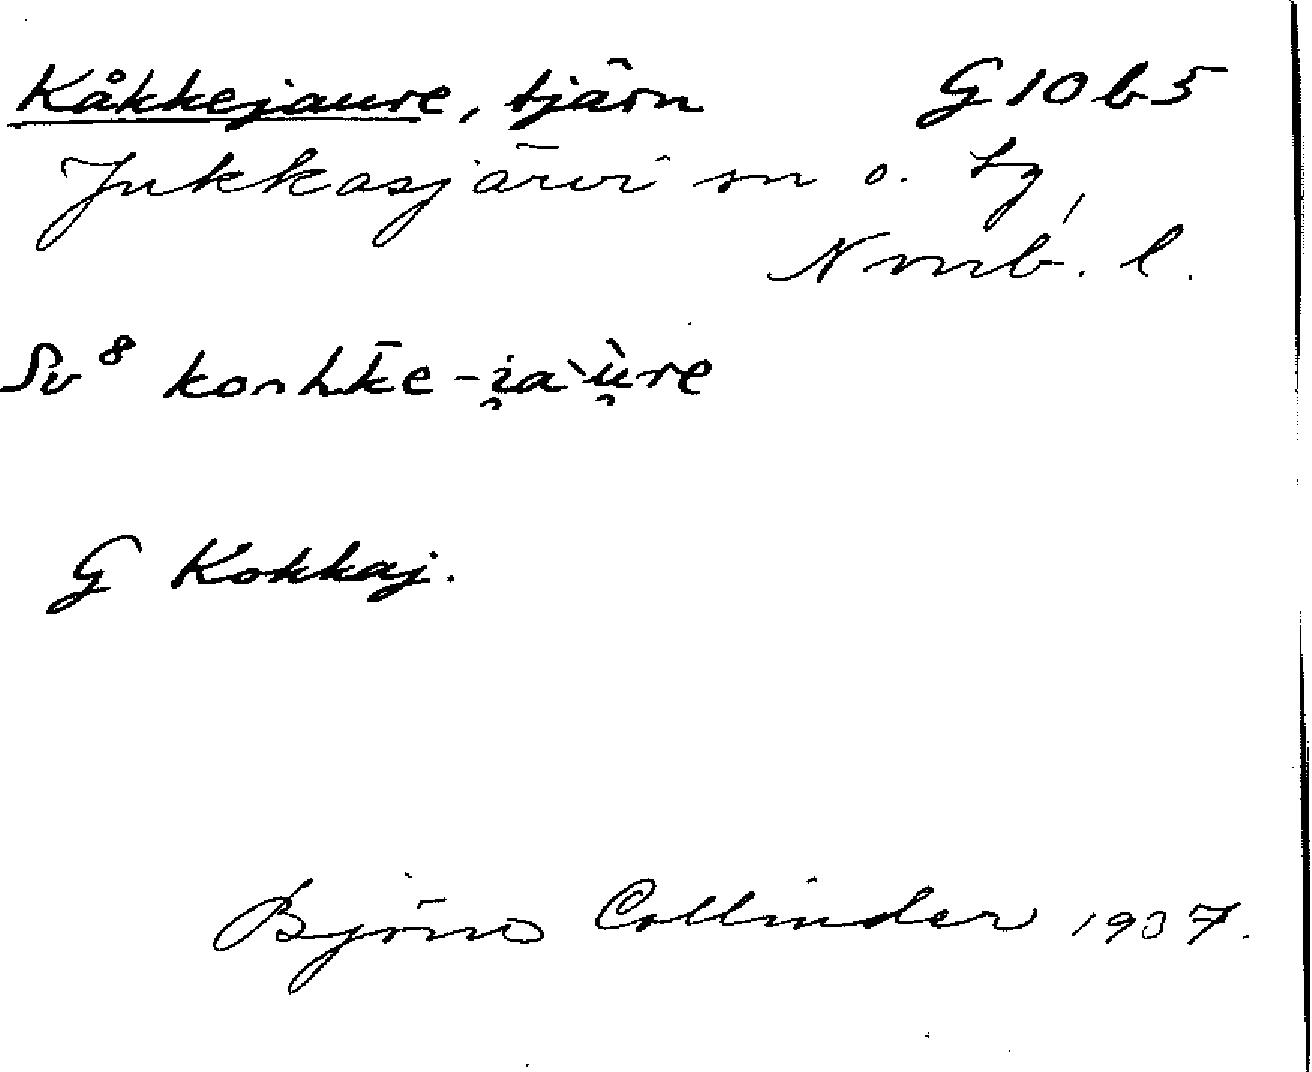 Kåkkejaure, tjärn G10b5
Jukkasjärvi sn o. tg,
Nrrb. l.
Sv 8
G Kokkaj.
Björn Collinder 1937.